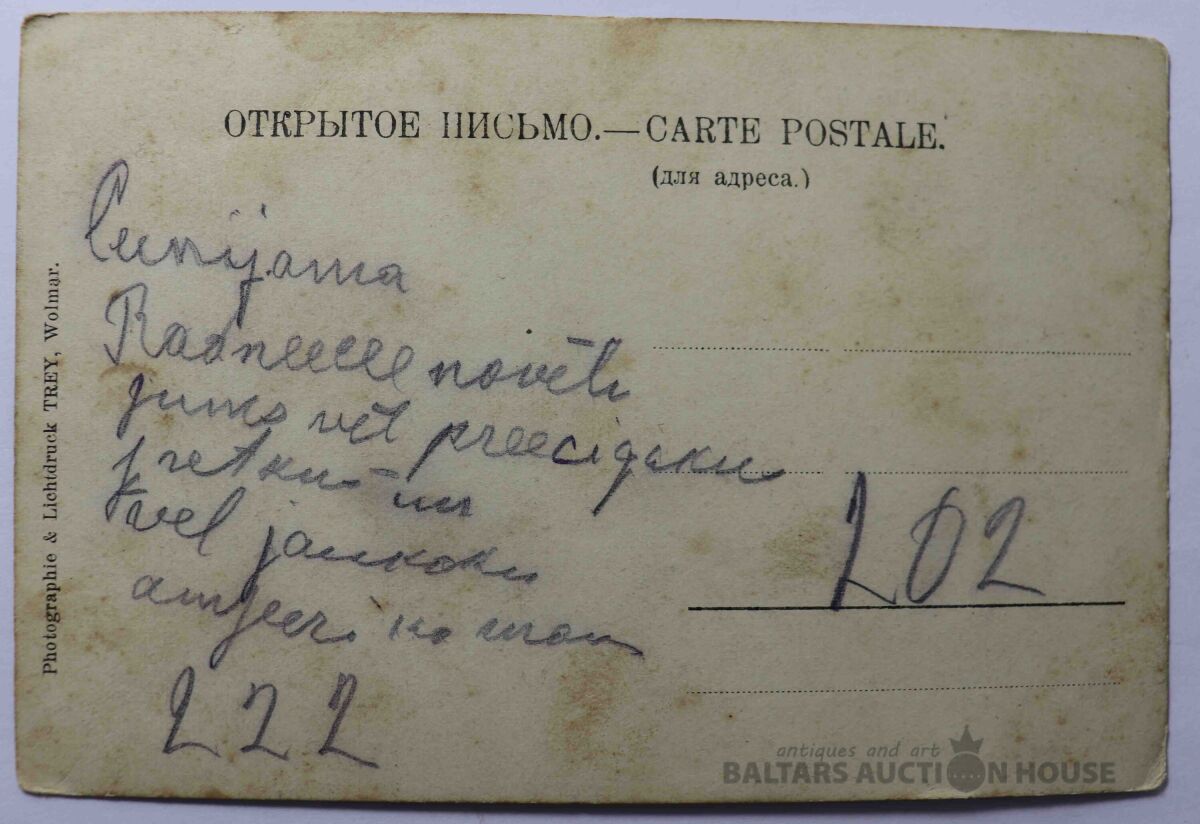 ОТКРЫТОЕ ПИСЬМО.—CARTE POSTALE.
(для адреса.)
Photographie & Lichtdruck TREY, Wolmar.
Cunijama
novēlu
jums vēl preecigaku
vel jaukaku
no man
222
202
antiques and art
BALTARS AUCTION HOUSE